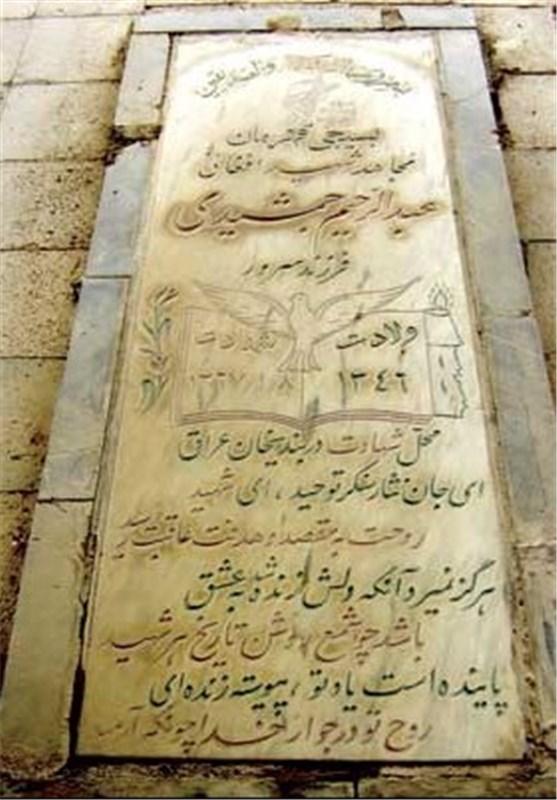 بسیجی قهرمان
مجاهد شهید افغانی
عبدالرحیم جمشیدی
فرزند سرور
ولادت شهادت
۱۳۴۶ ۱۳۶۷/۱/۸
محل شهادت دربندیخان عراق
ای جان نثار سنگر توحید، ای شهید
روحت به مقصد و هدفت عاقبت رسید
هرگز نمیرد آنکه دلش زنده شد به عشق
باشد چو شمع روشن تاریخ هر شهید
پاینده است یاد تو، پیوسته زنده ای
روح تو در جوار خدا چونکه آرمید